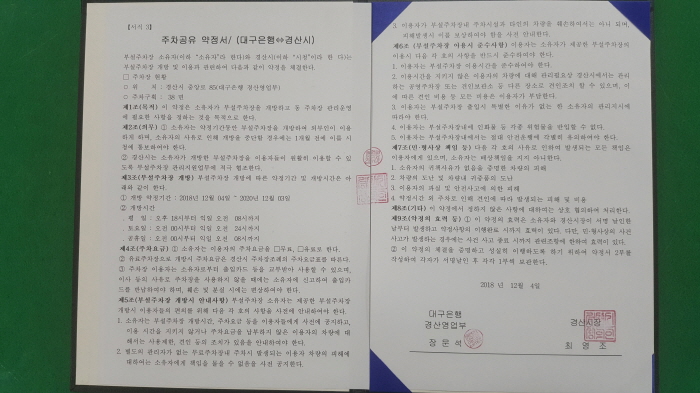 【서식 3】
주차공유 약정서/ (대구은행⇔경산시)
부설주차장 소유자(이하 "소유자"라 한다)와 경산시(이하 "시청"이라 한 다)는
부설주차장 개방 및 이용과 관련하여 다음과 같이 약정을 체결한다.
□ 주차장 현황
○ 위 치 : 경산시 중앙로 85(대구은행 경산영업부)
○ 주차구획 : 38 면
제1조(목적) 이 약정은 소유자가 부설주차장을 개방하고 동 주차장 관리운영
에 필요한 사항을 정하는 것을 목적으로 한다.
제2조(의무) ① 소유자는 약정기간동안 부설주차장을 개방하여 외부인이 이용
하게 하며, 소유자의 사유로 인해 개방을 중단할 경우에는 1개월 전에 이를 시
청에 통보하여야 한다.
② 경산시는 소유자가 개방한 부설주차장을 이용자들이 원활히 이용할 수 있
도록 부설주차장 관리지원업무에 적극 협조한다.
제3조(부설주차장 개방) 부설주차장 개방에 따른 약정기간 및 개방시간은 아
래와 같이 한다.
① 개방 약정기간 : 2018년 12월 04일 ~ 2020년 12월 03일
② 개방시간
- 평 일 : 오후 18시부터 익일 오전 08시까지
- 토요일 : 오전 00시부터 익일 오전 24시까지
- 공휴일 : 오전 00시부터 익일 오전 08시까지
제4조(주차요금) ① 소유자는 이용자의 주차요금을 □무료, □유료로 한다.
② 유료주차장으로 개방시 주차요금은 경산시 주차장조례의 주차요금표를 따른다.
③ 주차장 이용자는 소유자로부터 출입카드 등을 교부받아 사용할 수 있으며,
이사 등의 사유로 주차장을 사용하지 않을 때에는 소유자에 신고하여 출입카
드를 반납하여야 하며, 훼손 및 분실 시에는 변상하여야 한다.
제5조(부설주차장 개방시 안내사항) 부설주차장 소유자는 제공한 부설주차장
개방시 이용자들의 편의를 위해 다음 각 호의 사항을 사전에 안내하여야 한다.
1. 소유자는 부설주차장 개방시간, 주차요금 등을 이용자들에게 사전에 공지하고,
이용 시간을 지키지 않거나 주차요금을 납부하지 않은 이용자의 차량에 대
해서는 사용제한, 견인 등의 조치가 있음을 안내하여야 한다.
2. 별도의 관리자가 없는 무료주차장내 주차시 발생되는 이용자 차량의 피해에
대하여는 소유자에게 책임을 물을 수 없음을 사전 공지한다.
3. 이용자가 부설주차장내 주차시설과 타인의 차량을 훼손하여서는 아니 되며,
피해발생시 이를 보상하여야 함을 사전 안내한다.
제6조 (부설주차장 이용시 준수사항) 이용자는 소유자가 제공한 부설주차장의
이용시 다음 각 호의 사항을 반드시 준수하여야 한다.
1. 이용자는 부설주차장 이용시간을 준수하여야 한다.
2. 이용시간을 지키지 않은 이용자의 차량에 대해 관리필요상 경산시에서는 관리
하는 공영주차장 또는 견인보관소 등 다른 장소로 견인조치 할 수 있으며, 이
에 따른 견인 비용 등 모든 비용은 이용자가 부담한다.
3. 이용자는 부설주차장 출입시 특별한 이유가 없는 한 소유자의 관리지시에
따라야 한다.
4. 이용자는 부설주차장내에 인화물 등 각종 위험물을 반입할 수 없다.
5. 이용자는 부설주차장내에서는 절대 안전운행에 각별히 유의하여야 한다.
제7조(민·형사상 책임 등) 다음 각 호의 사유로 인하여 발생되는 모든 책임은
이용자에게 있으며, 소유자는 배상책임을 지지 아니한다.
1. 소유자의 귀책사유가 없음을 증명한 차량의 피해
2. 차량의 도난 및 차량내 귀중품의 도난
3. 이용자의 과실 및 안전사고에 의한 피해
4. 약정시간 외 주차로 인해 견인에 따라 발생되는 피해 및 비용
제8조(기타) 이 약정에서 정하지 않은 사항에 대하여는 상호 협의하여 처리한다.
제9조(약정의 효력 등) ① 이 약정의 효력은 소유자와 경산시장이 서명 날인한
날부터 발생하고 약정사항의 이행완료 시까지 효력이 있다. 다만, 민·형사상의 사건
사고가 발생하는 경우에는 사건 사고 종료 시까지 관련조항에 한하여 효력이 있다.
② 이 약정의 체결을 증명하고 성실히 이행하도록 하기 위하여 약정서 2부를
작성하며 당사자가 서명날인 후 각각 1부씩 보관한다.
2018 년 12월 4일
대구은행
경산영업부 경산시장
장 문 석 최 영 조